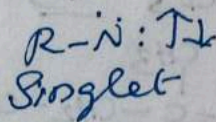 R-N̈: ↑↓
Singlet